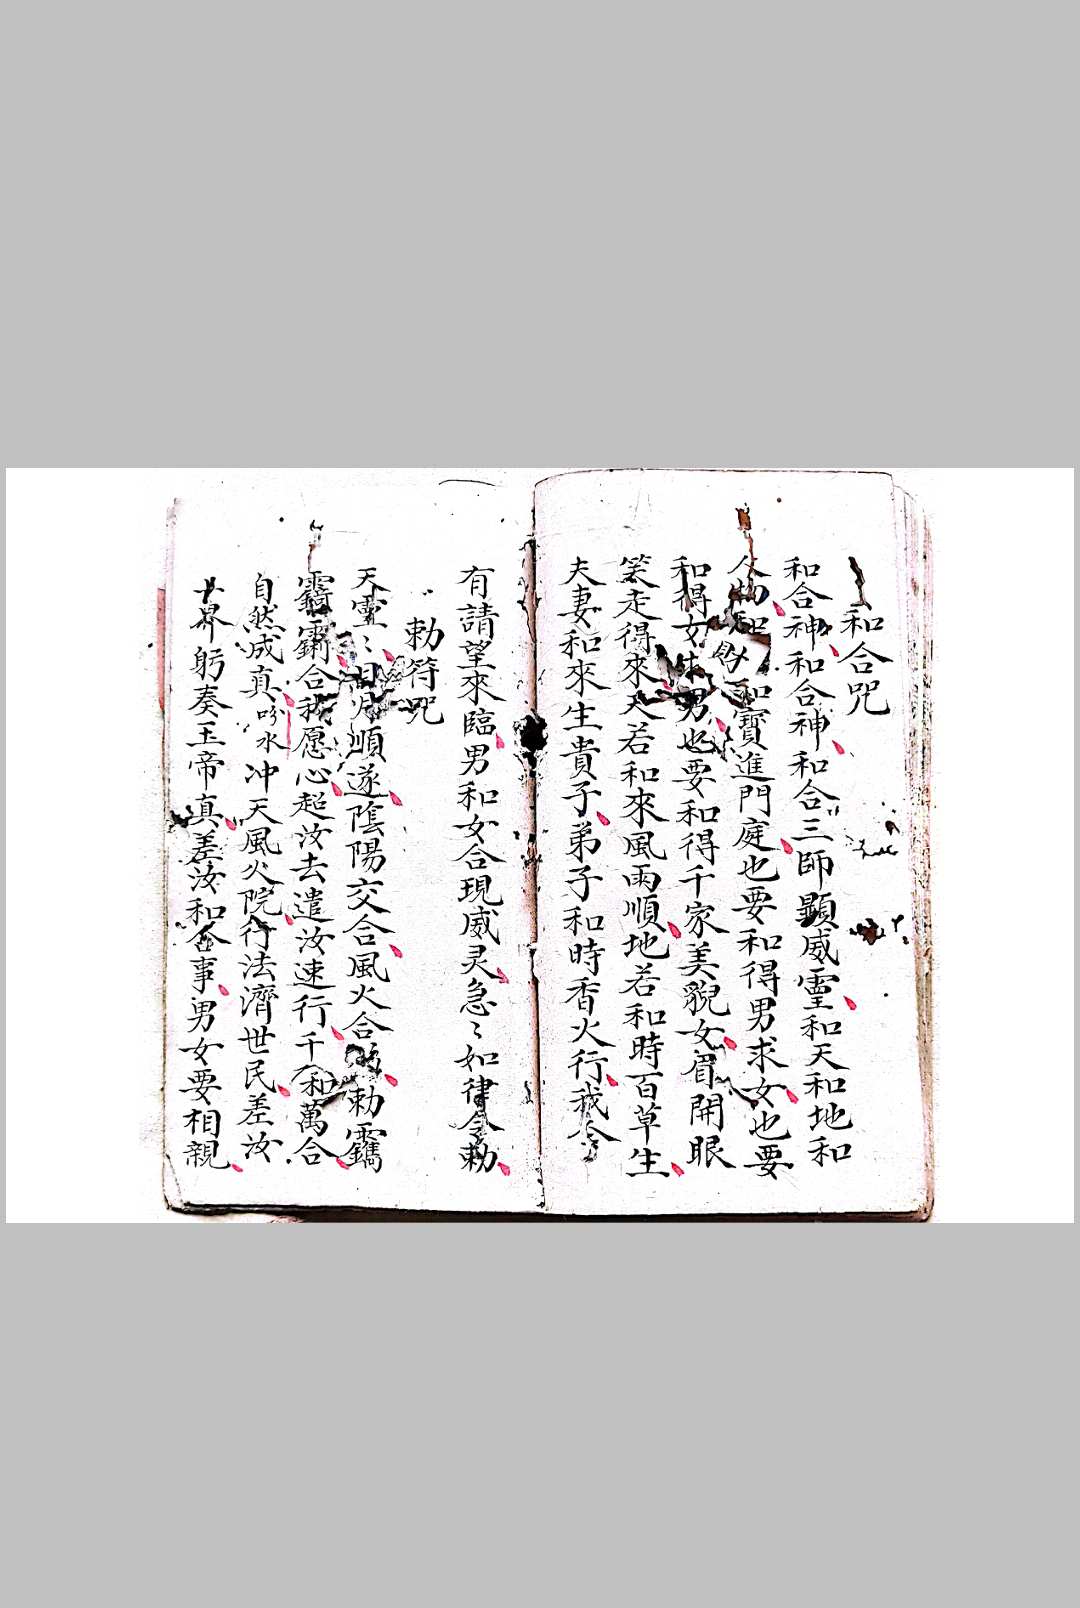 和合咒
和合神和合神和合三師顯威靈和天和地和
人物和財和寶進門庭也要和得男求女也要
和得女求男也要和得千家美貌女眉開眼
笑走得來天若和來風雨順地若和時百草生
夫妻和來生貴子弟子和時香火行我今
有請望來臨男和女合現威灵急〻如律令勅
勅符咒
天靈〻日月順遂陰陽交合風火合勅
合我愿心超汝去遣汝速行千和萬合
自然成真吩水冲天風火院行法濟世民差汝
上界躬奏玉帝真差汝和合事男女要相親